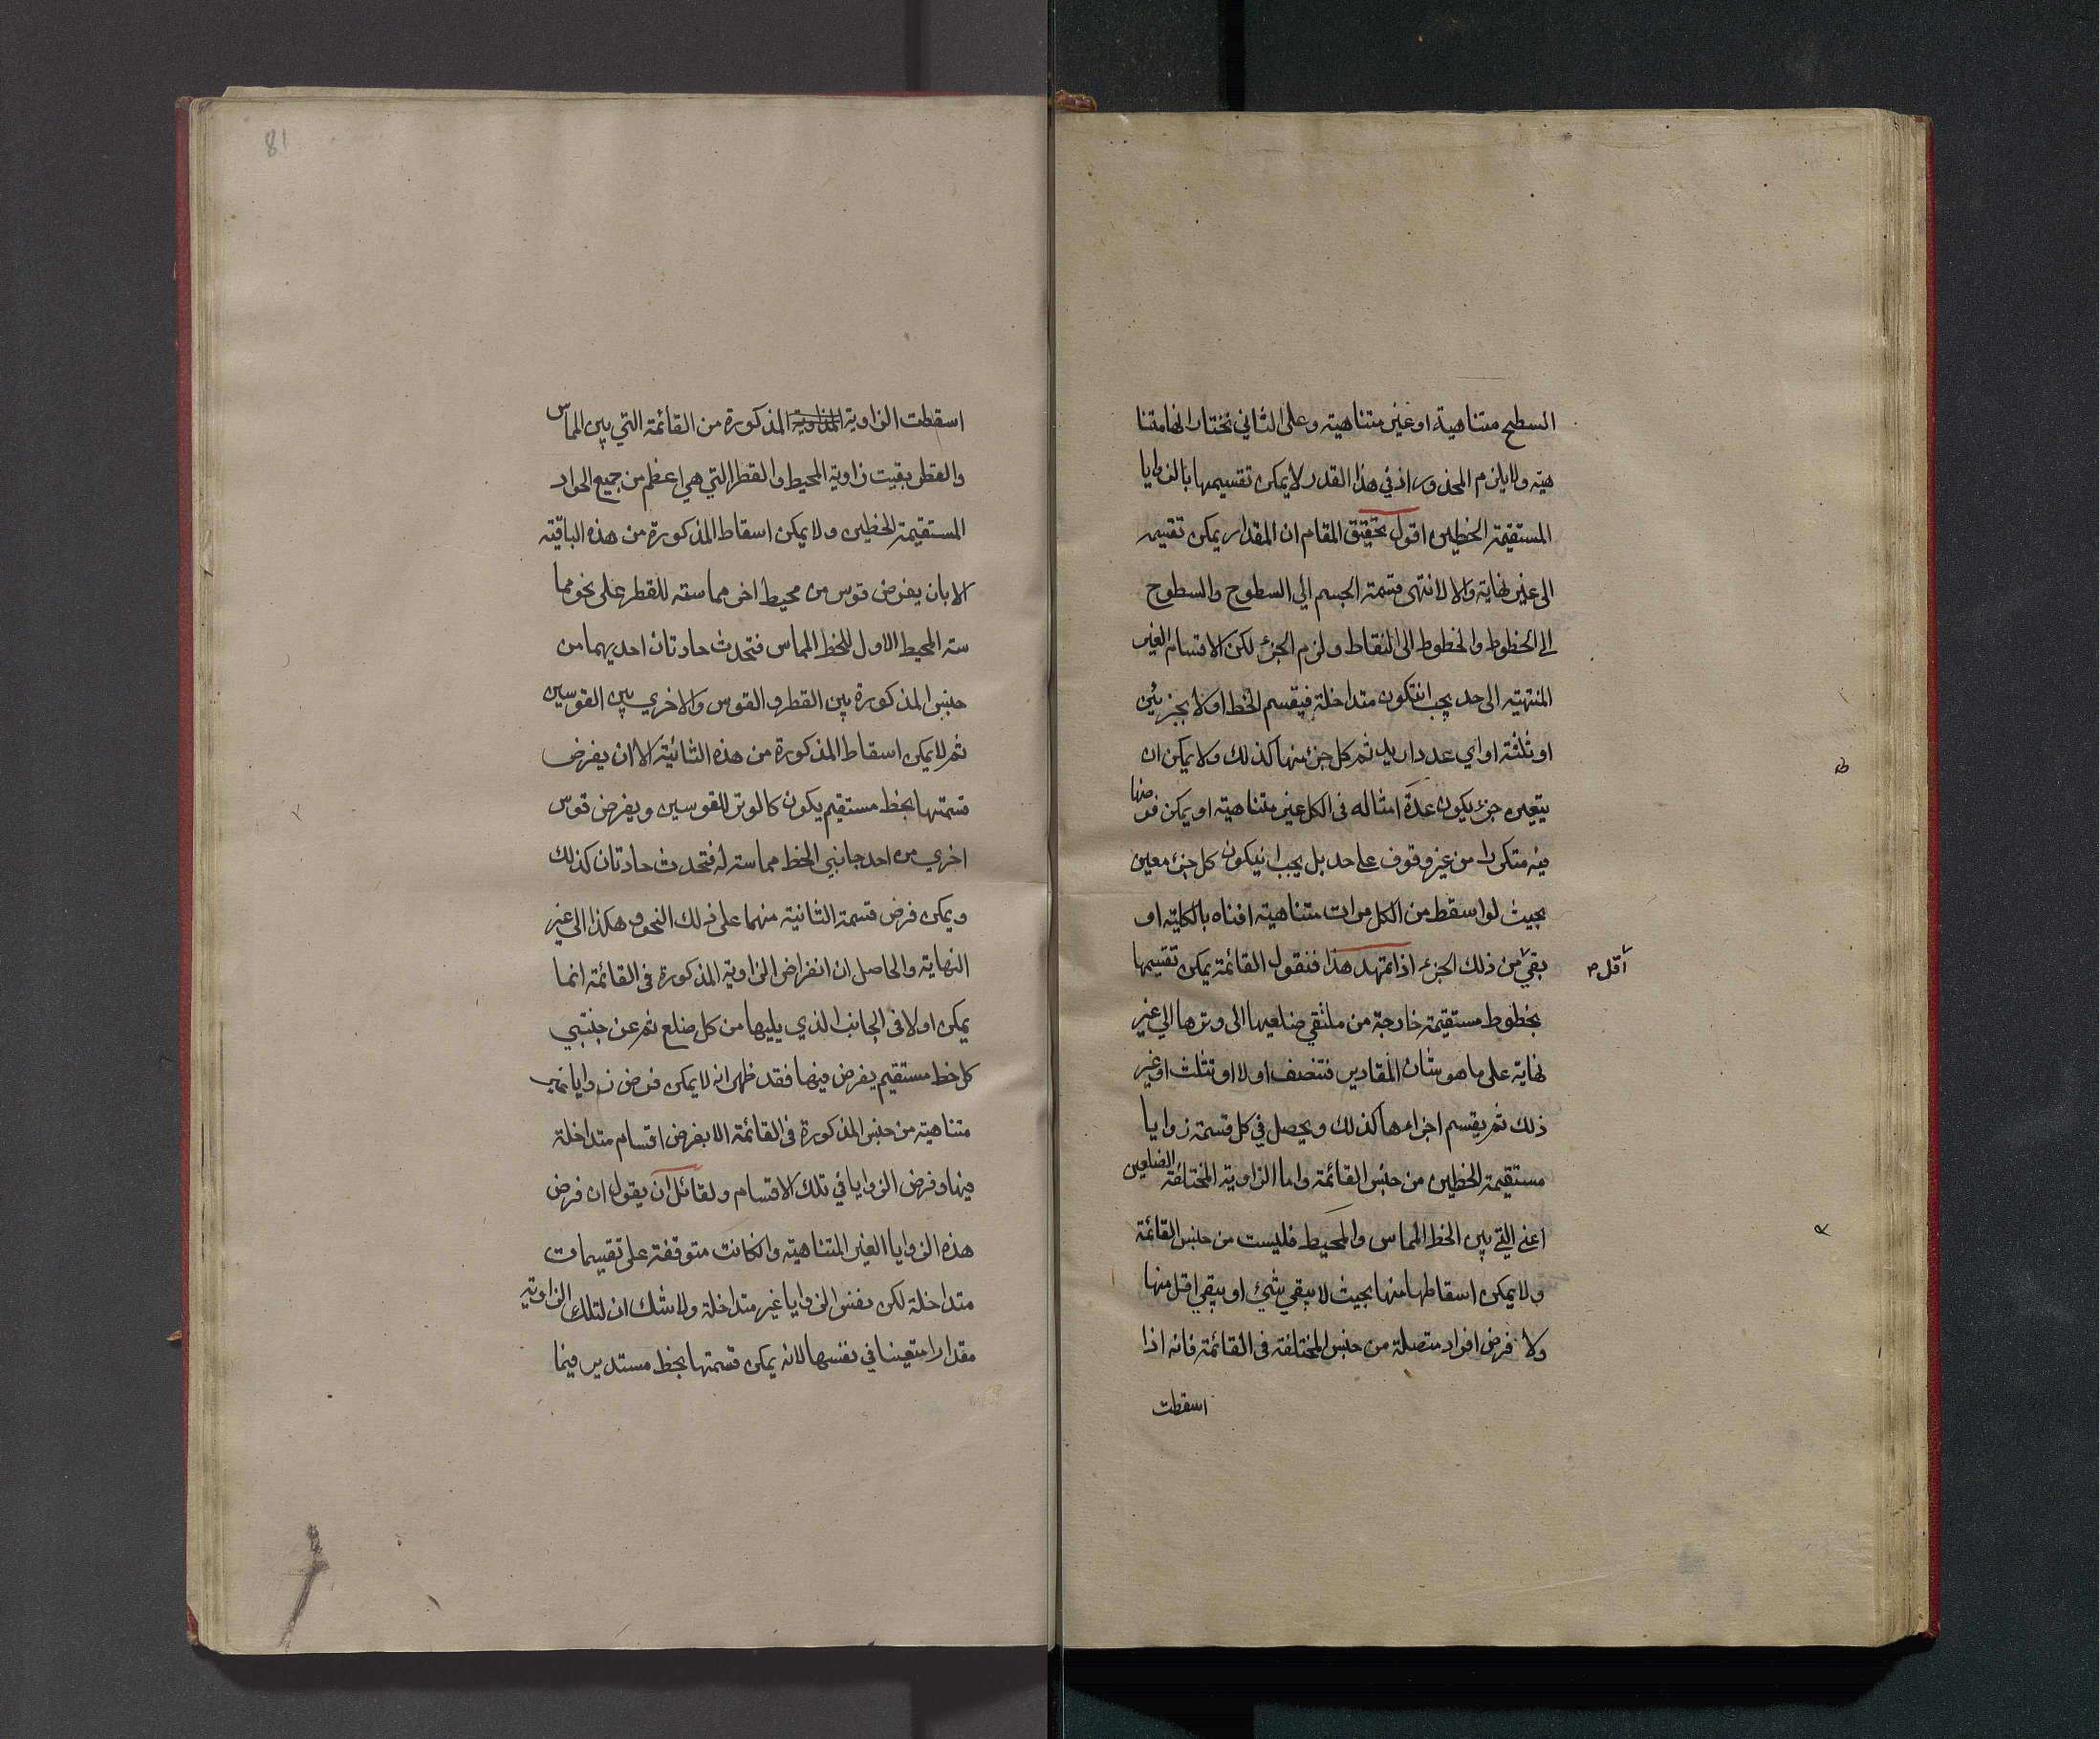 السطح متناهية او غير متناهيه وعلى الثاني نختار انها متنا
هيه ولا يلزم المحذور اذ في هذا القدر لا يمكن تقسيمها بالزوايا
المستقيمة الخطين اقول تحقيق المقام ان المقدار يمكن تقسيمه
الى غير نهاية والا لانتهى قسمة الجسم الي السطوح والسطوح
الي الخطوط والخطوط الى النقاط ولزم الجزء لكن الاقسام الغير
المنتهيه الى حد يجب انتكون متداخلة فيقسم الخط اولا بجزئين
او ثلثة او اي عدد اريد ثم كل جزء منها كذلك ولا يمكن ان
يتعين جزء يكون عدة امثاله في الكل غير متناهية او يمكن فرضها
فيه متكررا من غير وقوف على حد بل يجب انيكون كل جزء معين
بحيث لو اسقط من الكل مرات متناهية افناه بالكلية او
بقي من ذلك الجزء اذا تمهد هذا فنقول القائمة يمكن تقسيمها
اقل
بخطوط مستقيمة خارجة من ملتقي ضلعيها الى وترها الي غير
نهاية على ما هو شان المقادير فتنصف اولا او تثلث او غير
ذلك ثم يقسم اجزاءها كذلك ويحصل في كل قسمة زوايا
مستقيمة الخطين من جنس القائمة واما الزاوية المختلفة الضلعين
اعني التي بين الخط المماس والمحيط فليست من جنس القائمة
ولا يمكن اسقاطها منها بحيث لا يبقي شئ او يبقي اقل منها
ولا فرض افراد متصلة من جنس المختلفة في القائمة فانه اذا
اسقطت
81
اسقطت الزاوية المذكورة من القائمة التي بين المماس
والقطر بقيت زاوية المحيط والقطر التي هي اعظم من جميع الحواد
المستقيمة الخطين ولا يمكن اسقاط المذكورة من هذه الباقية
الا بان يفرض قوس من محيط اخر مماسته للقطر على نحو مما
سته المحيط الاول للخط المماس فتحدث حادتان احديهما من
جنس المذكورة بين القطر والقوس والاخري بين القوسين
ثم لا يمكن اسقاط المذكورة من هذه الثانية الا ان يفرض
قسمتها بخط مستقيم يكون كالوتر للقوسين ويفرض قوس
اخري من احد جانبي الخط مماسة له فتحدث حادتان كذلك
ويمكن فرض قسمة الثانية منهما على ذلك النحو وهكذا الى غير
النهاية والحاصل ان انفراض الزاوية المذكورة في القائمة انما
يمكن اولا في الجانب الذي يليها من كل ضلع ثم عن جنبتي
كل خط مستقيم يفرض فيها فقد ظهر انه لا يمكن فرض زوايا غير
متناهية من جنس المذكورة في القائمة الا بفرض اقسام متداخلة
فيها وفرض الزوايا في تلك الاقسام ولقائل ان يقول ان فرض
هذه الزوايا الغير المتناهية وانكانت متوقفة على تقسيمات
متداخلة لكن نفس الزوايا غير متداخلة ولا شك ان لتلك الزاوية
مقدارا متعينا في نفسها لانه يمكن قسمتها بخط مستدير فيما